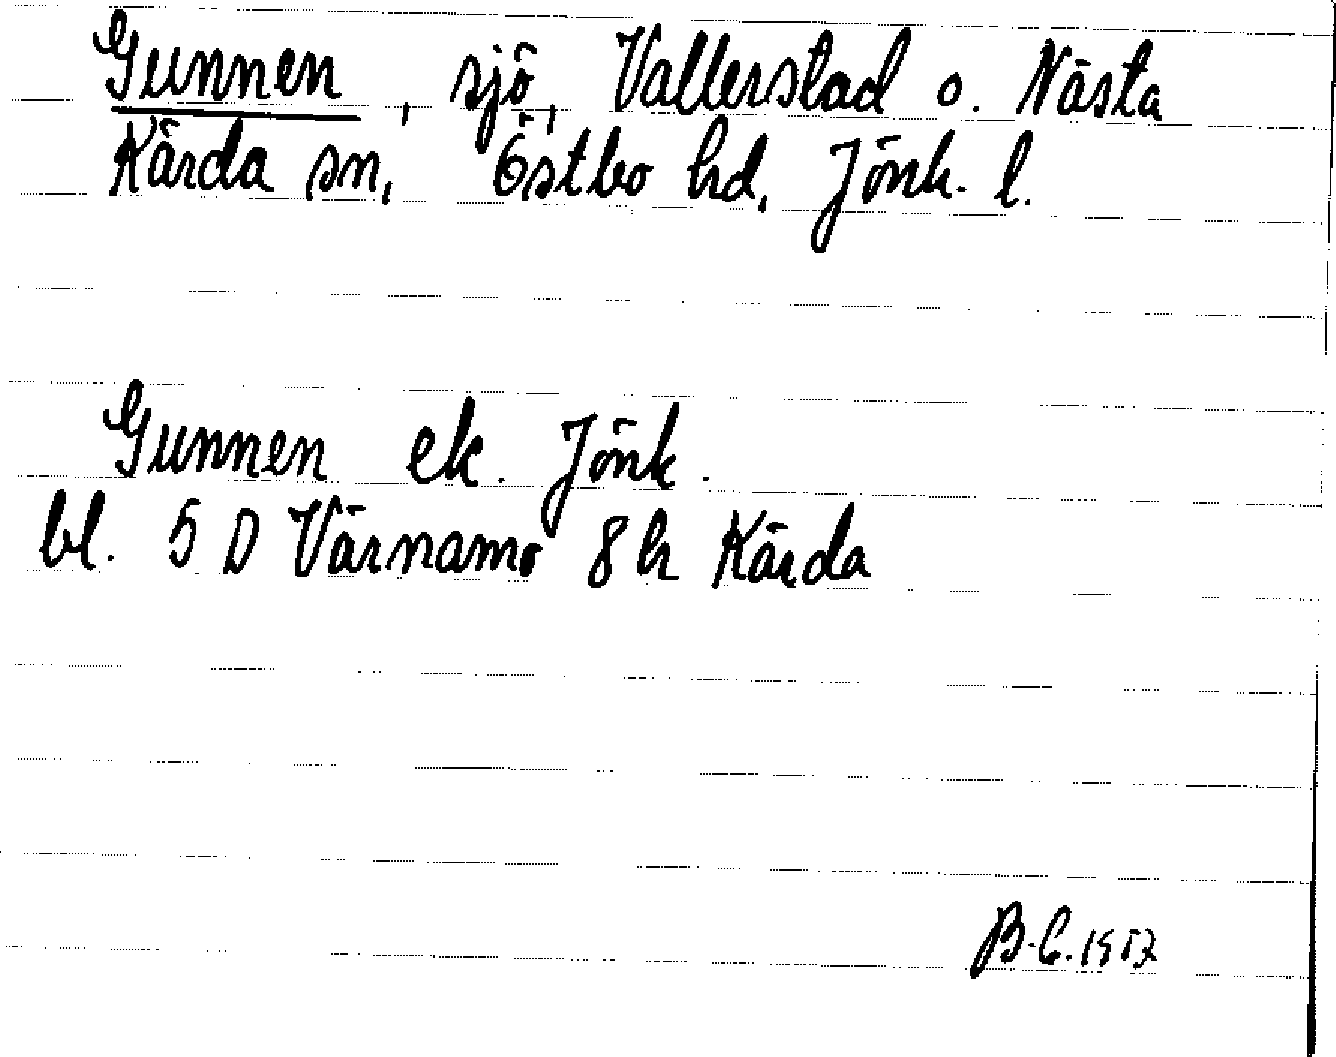 Gunnen, sjö, Vallerstad o. Nästa
Kärda sn, Östbo hd, Jönk. l.
Gunnen ek. Jönk.
bl. 5 D Värnamo 8 h Kärda
B-C. 1952